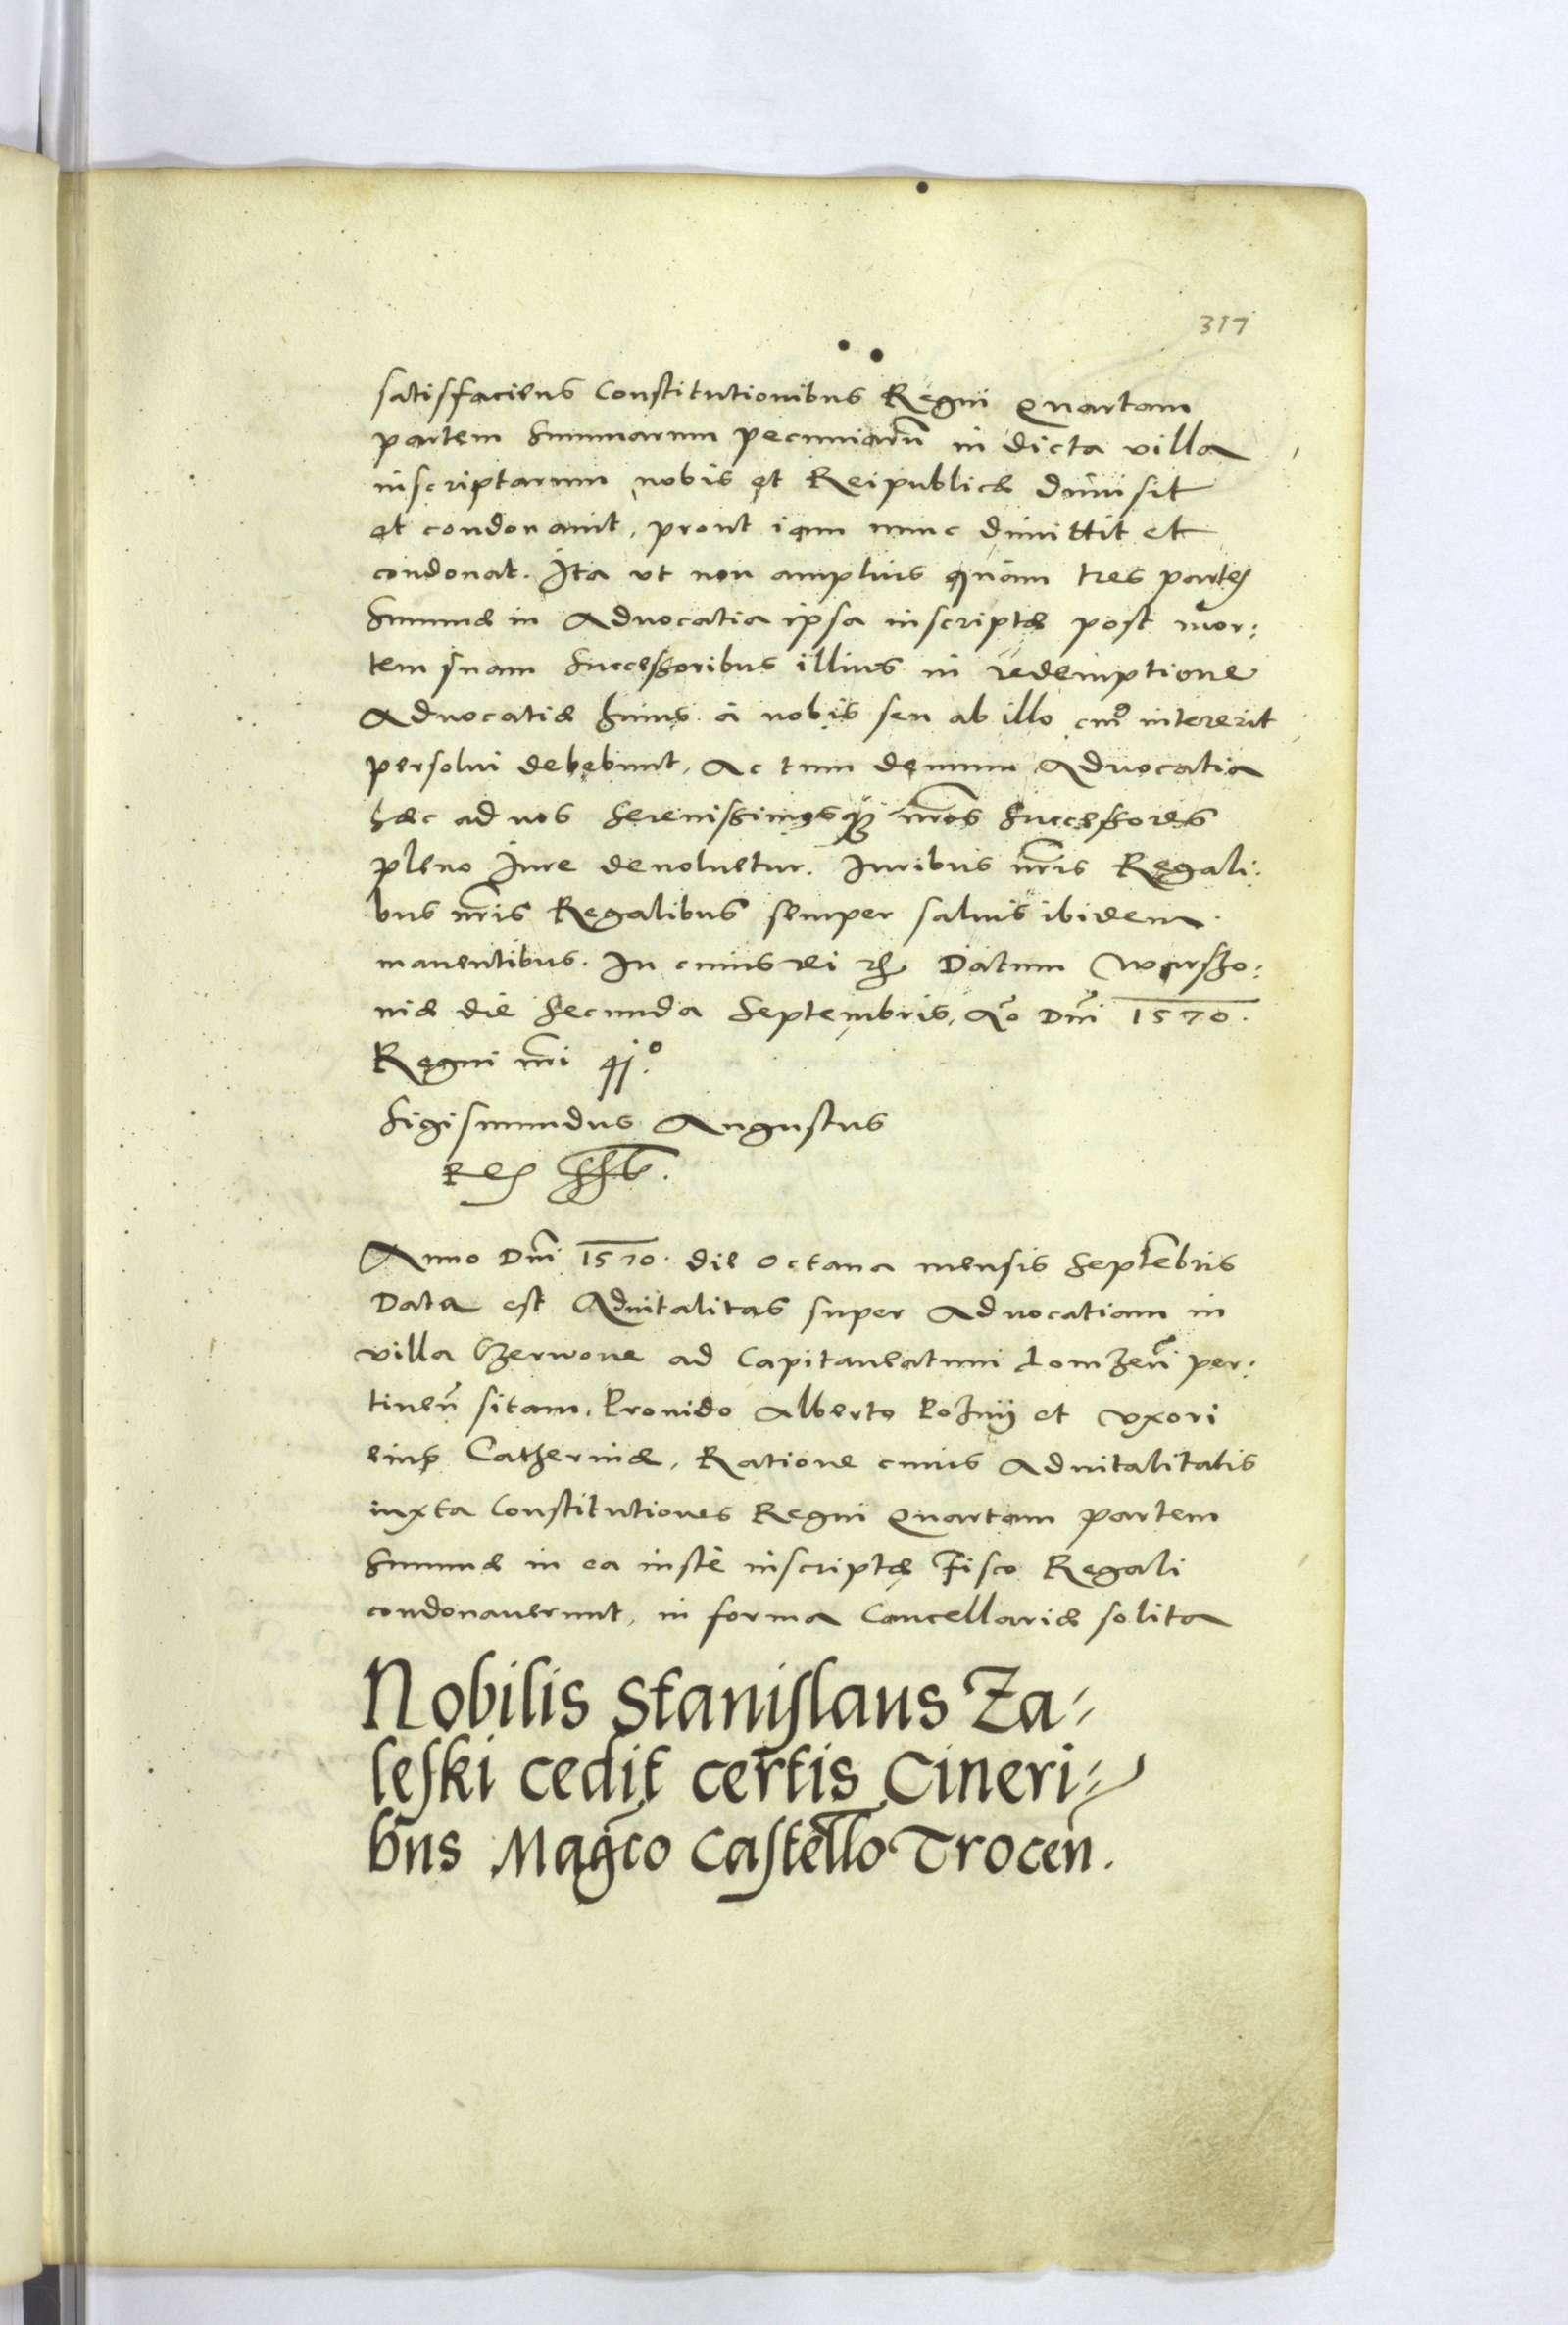 317
satisfaciens Constitutionibus Regni Quartam
partem summarum pecuniarũ in dicta villa
inscriptarum nobis et Reipublicæ dimisit
et condonauit, prout iam nunc dimittit et
condonat. Ita vt non amplius quàm tres partes
summæ in Aduocatia ipsa inscriptæ post mor:
tem suam Successoribus illius in redemptione
Aduocatiæ huius à nobis seu ab illo cui9 intererit
persolui debebunt, Ac tum demum Aduocatia
hæc ad nos Serenissimosq3 nr̃os Successores
pleno Iure deuoluetur. Iuribus nr̃is Regali:
bus nr̃is Regalibus semper saluis ibidem
manentibus. In cuius rei Datum Warszo:
uiæ die Secunda Septembris, Aõ Dñi 1570.
Regni nr̃i 41º.
Sigismundus Augustus
Rex sst.
Anno Dñi 1570. die Octaua mensis Septẽbris
Data est Aduitalitas super Aduocatiam in
villa Czerwone ad Capitaneatum Lomzeñ per:
tineñ sitam, Prouido Alberto et Vxori
eius Catherinæ, Ratione cuius Aduitalitatis
iuxta Constitutiones Regni Quartam partem
Summæ in ea iustè inscriptæ Fisco Regali
condonauerunt, in forma Cancellariæ solita
Nobilis Stanislaus Za-
leski cedit certis Cineri-
bus Magco Castello Trocen.